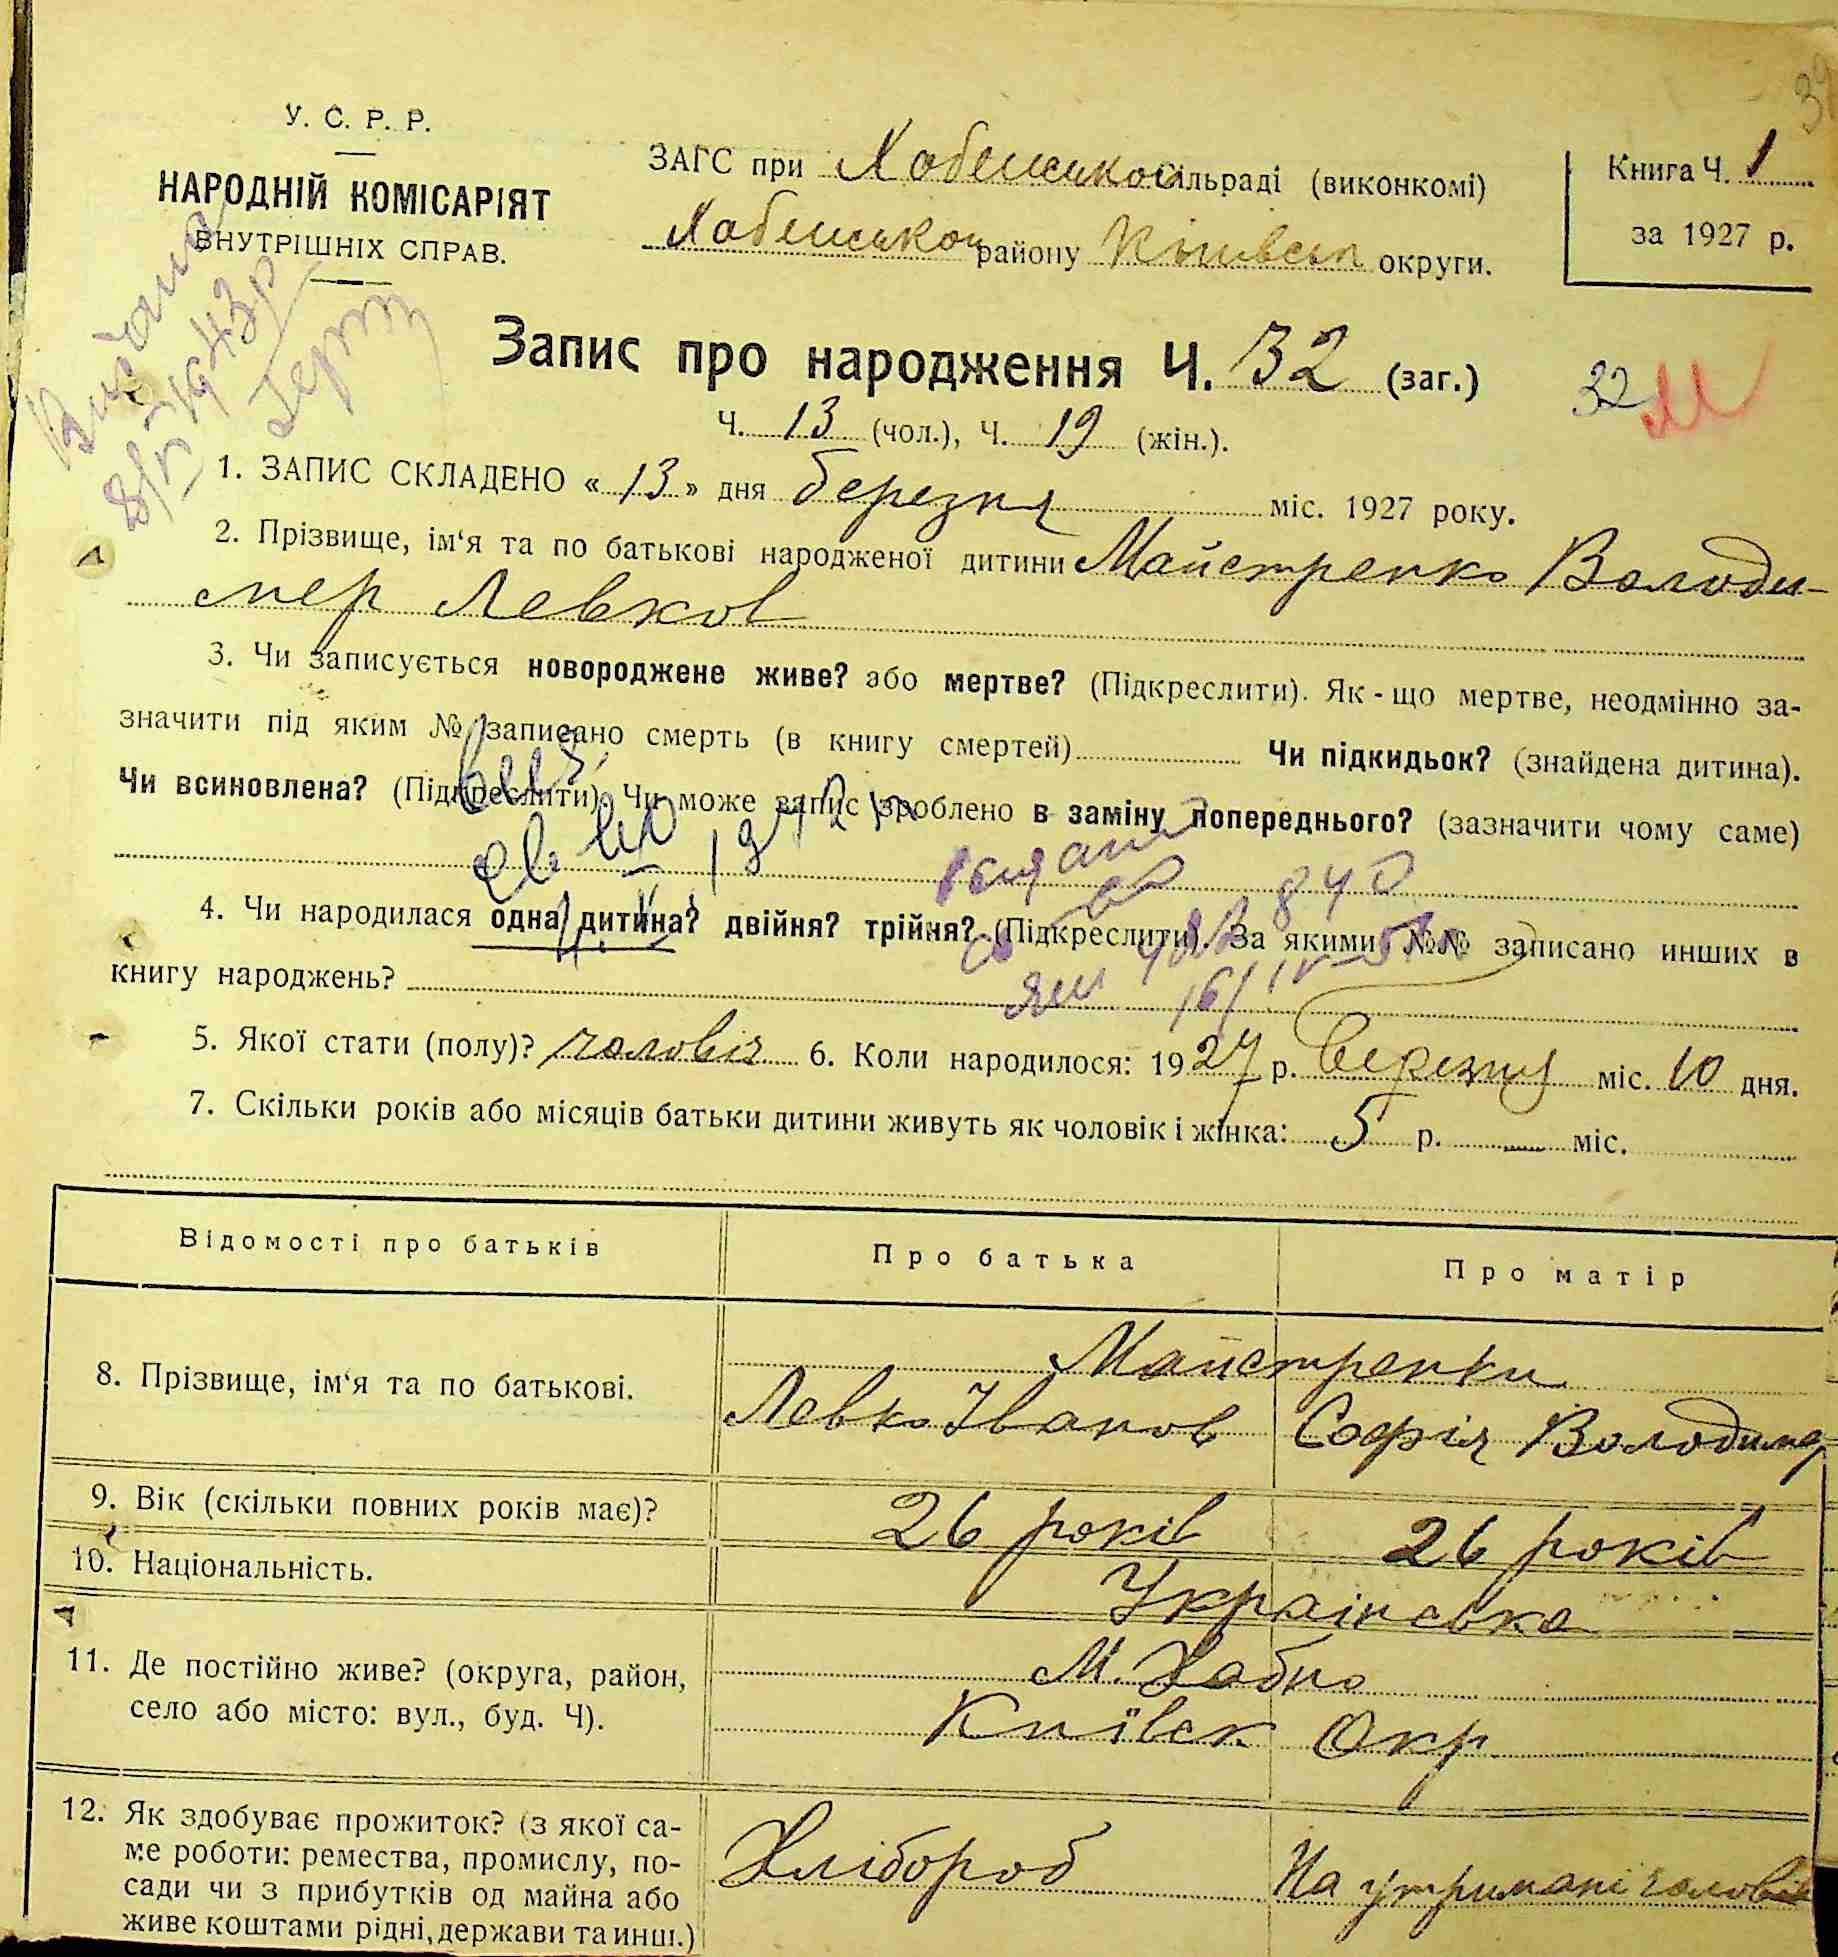 У. С. Р. Р.
НАРОДНІЙ КОМІСАРІЯТ
ВНУТРІШНІХ СПРАВ.
ЗАГС при Хабенської сільраді (виконкомі)
Хабенського району Київськ округи.
Книга Ч. 1
за 1927 р.
Видано
1943р
Запис про народження Ч. 32 (заг.)
32 М
Ч. 13 (чол.), Ч. 19 (жін.).
1. ЗАПИС СКЛАДЕНО « 13 » дня березня міс. 1927 року.
2. Прізвище, ім'я та по батькові народженої дитини Майстренко Володи-
мер Левков
3. Чи записується новороджене живе? або мертве? (Підкреслити). Як-що мертве, неодмінно за-
значити під яким № записано смерть (в книгу смертей) Чи підкидьок? (знайдена дитина).
Чи всиновлена? (Підкреслити). Чи може запис зроблено в заміну попереднього? (зазначити чому саме)
4. Чи народилася одна дитина? двійня? трійня? (Підкреслити). За якими №№ записано инших в
книгу народжень?
5. Якої стати (полу)? чоловіч 6. Коли народилося: 1927 р. березня міс. 10 дня.
7. Скільки років або місяців батьки дитини живуть як чоловік і жінка: 5 р. — міс.
Відомості про батьків Про батька Про матір
8. Прізвище, ім'я та по батькові.
Майстренки
Левко Іванов Софія Володимер
9. Вік (скільки повних років має)? 26 років 26 років
10. Національність. Українська
11. Де постійно живе? (округа, район,
село або місто: вул., буд. Ч).
М. Хабно
Київськ Окр
12. Як здобуває прожиток? (з якої са-
ме роботи: ремества, промислу, по-
сади чи з прибутків од майна або
живе коштами рідні, держави та инш.)
Хлібороб На утримані чоловік